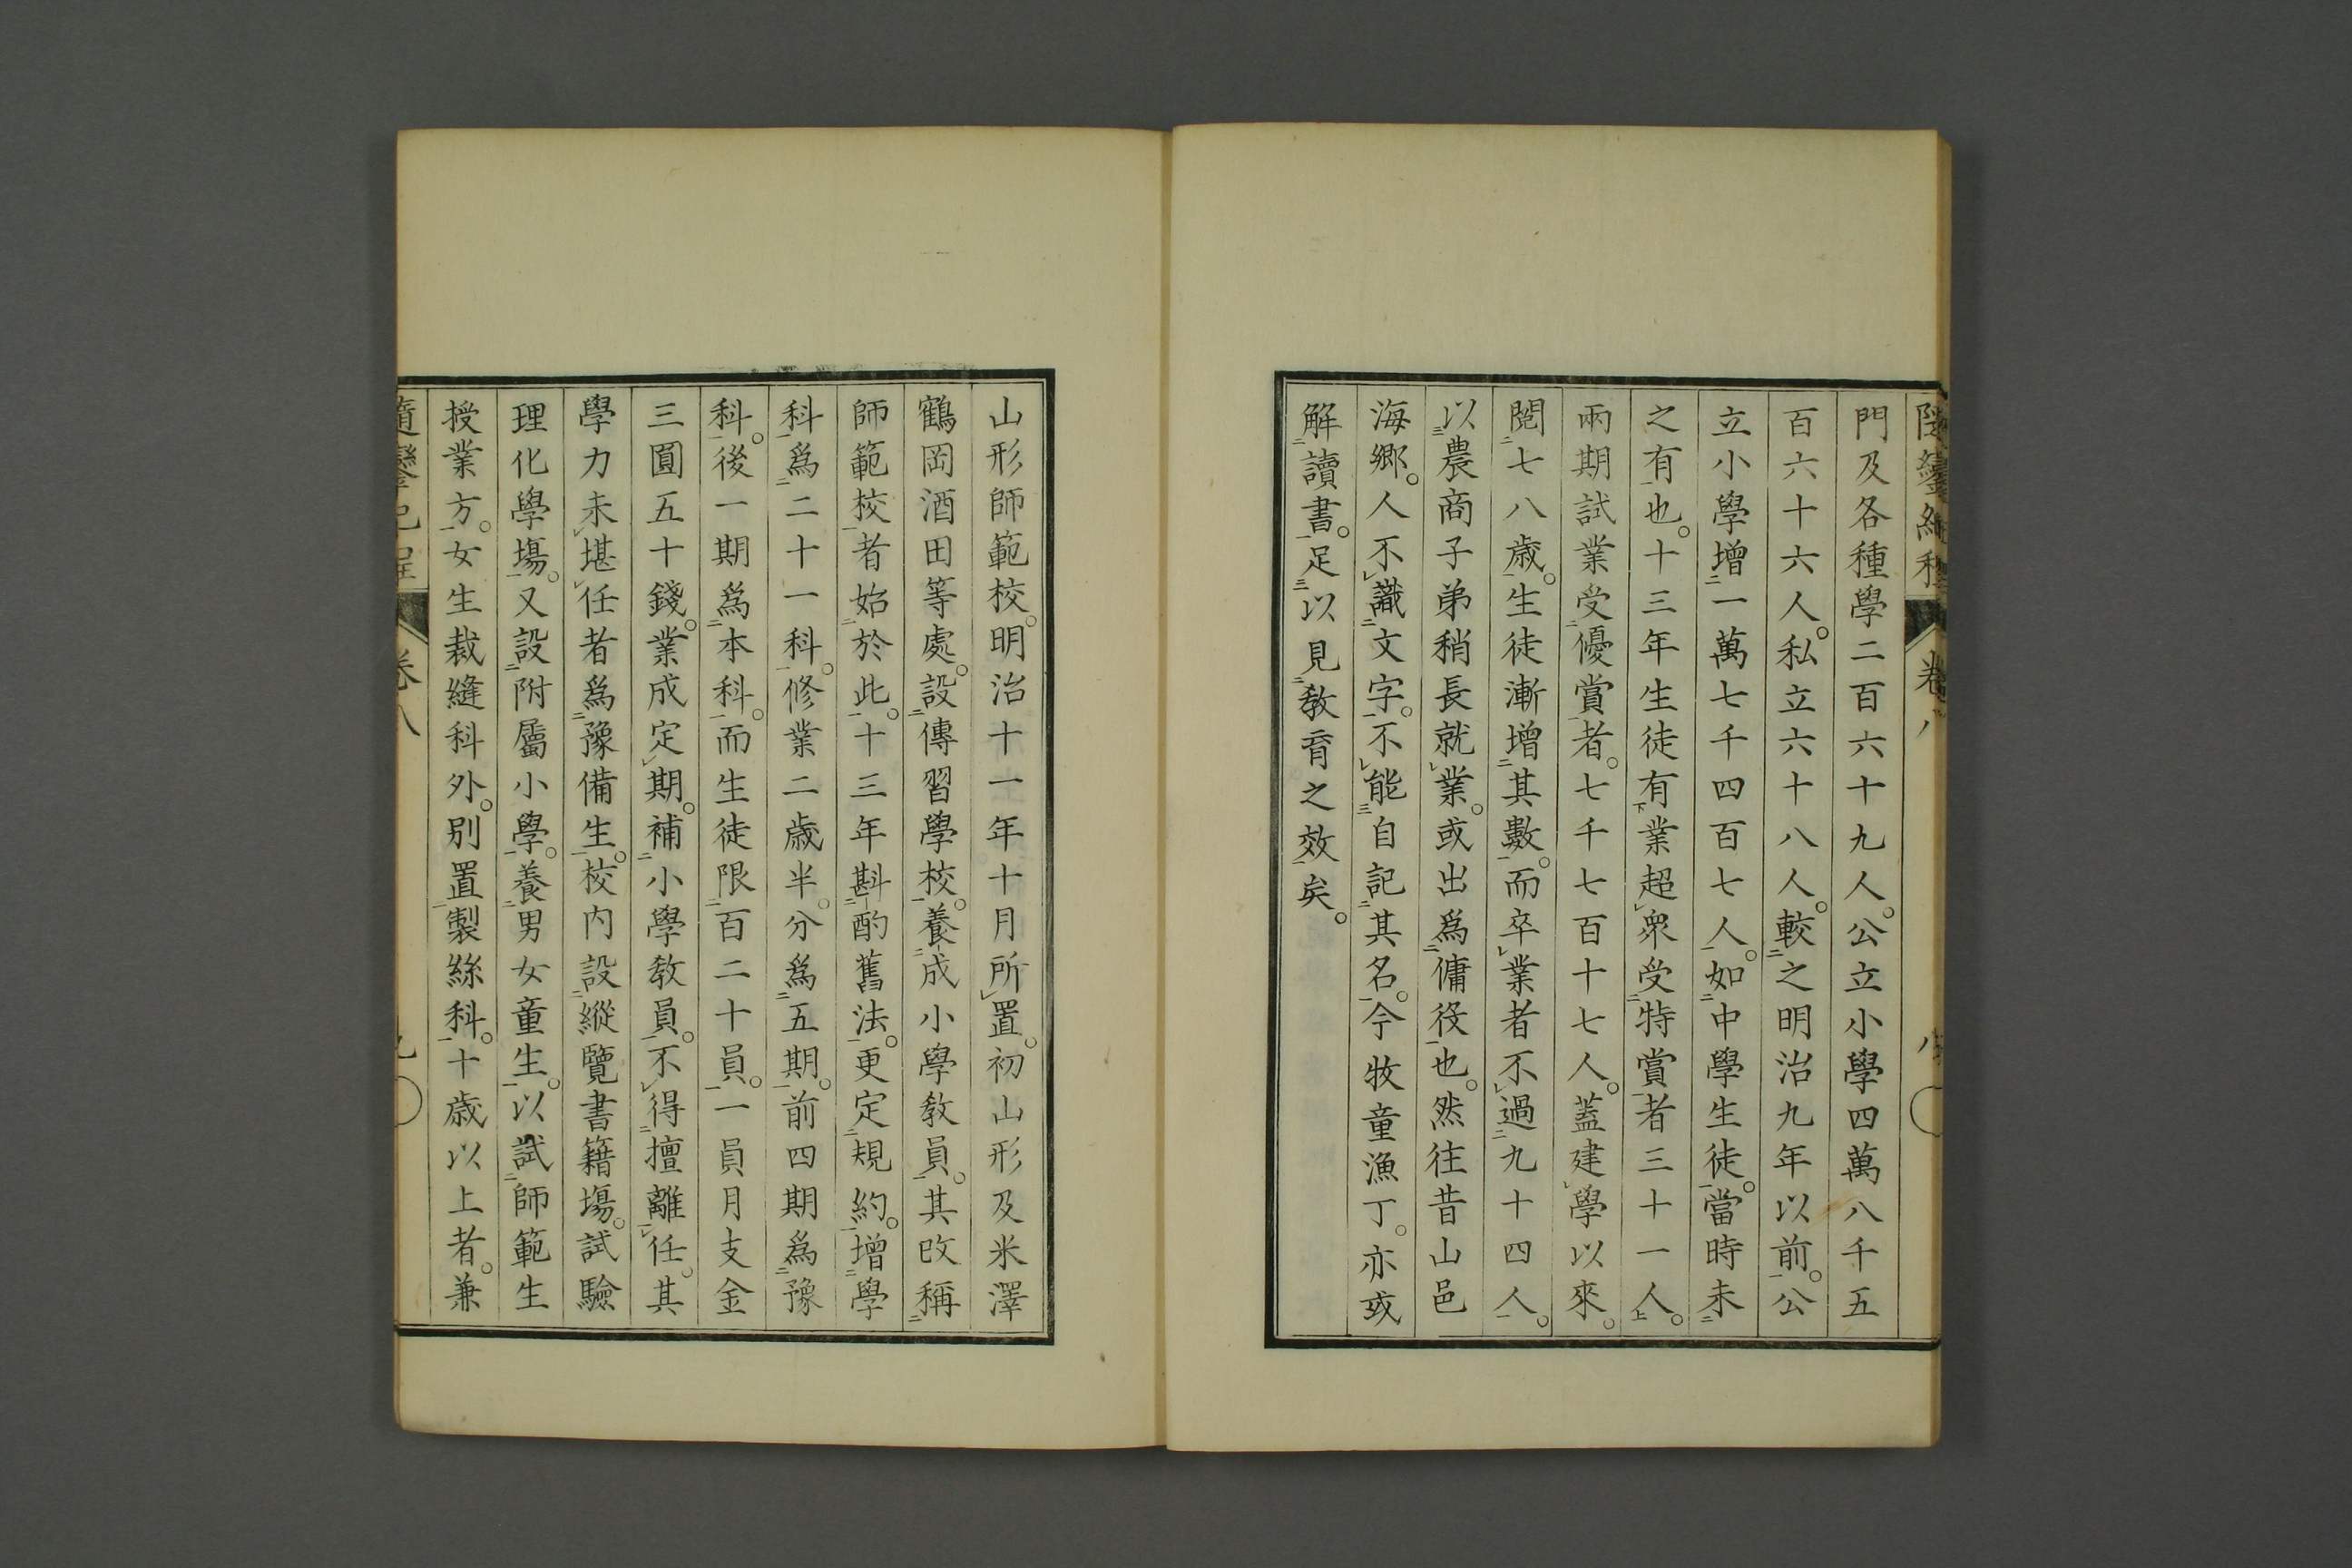 門及各種學二百六十九人。公立小學四萬八千五
百六十六人。私立六十八人。較㆓之明治九年以前㆒。公
立小學增㆓一萬七千四百七人㆒。如㆓中學生徒㆒。當時未㆓
之有㆒也。十三年生徒有㆘業超㆑衆受㆓特賞㆒者三十一人㆖。
兩期試業受㆓優賞㆒者。七千七百十七人。蓋建㆑學以來。
閱㆓七八歲㆒。生徒漸增㆓其數㆒。而卒㆑業者不㆑過㆓九十四人㆒。
以㆔農商子弟稍長就㆑業。或出爲㆓傭役㆒也。然往昔山邑
海鄉。人不㆑識㆓文字㆒。不㆑能㆔自記㆓其名㆒。今牧童漁丁。亦或
解㆓讀書㆒。足㆔以見㆓教育之效㆒矣。
隨鑾紀程 卷八
山形師範校。明治十一年十月所㆑置。初山形及米澤
鶴岡酒田等處。設㆓傳習學校㆒。養㆓成小學教員㆒。其改稱㆓
師範校㆒者始㆓於此㆒。十三年斟㆓酌舊法㆒。更定㆓規約㆒。增㆓學
科㆒爲㆓二十一科㆒。修業二歲半。分爲㆓五期㆒。前四期爲㆓豫
科㆒。後一期爲㆓本科㆒。而生徒限㆓百二十員㆒。一員月支金
三圓五十錢。業成定㆑期。補㆓小學教員㆒。不㆑得㆓擅離㆒㆑任。其
學力未㆑堪㆑任者爲㆓豫備生㆒。校內設㆓縱覽書籍場。試驗
理化學場㆒。又設㆓附屬小學㆒。養㆓男女童生㆒。以試㆓師範生
授業方㆒。女生裁縫科外。別置㆓製絲科㆒。十歲以上者。兼
隨鑾紀程 卷八 九